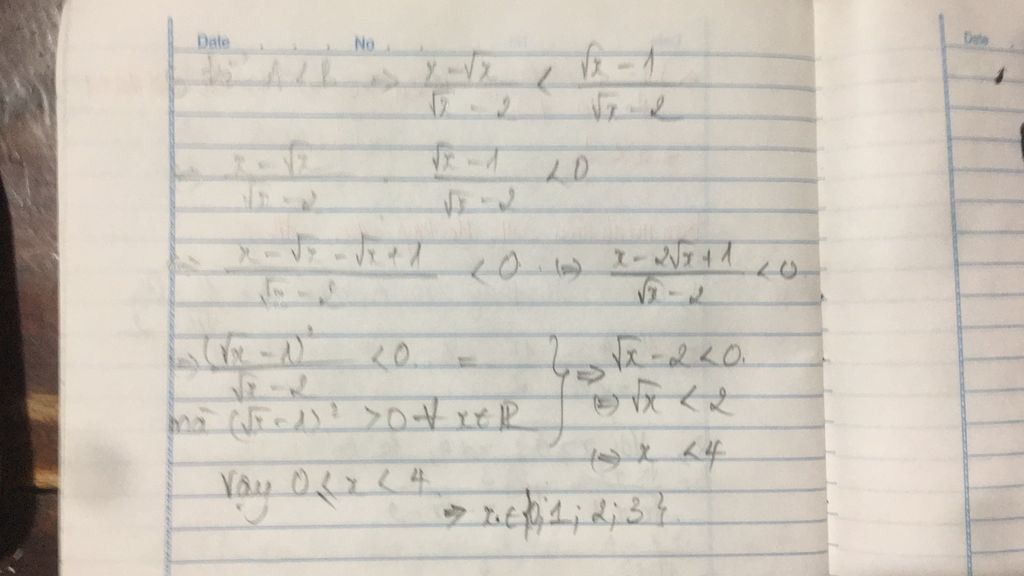 Date No Date
Để A < B => (x - √x)/(√x - 2) < (√x - 1)/(√x - 2)
(x - √x)/(√x - 2) (√x - 1)/(√x - 2) < 0
(x - √x - √x + 1)/(√x - 2) < 0 . (=) (x - 2√x + 1)/(√x - 2) < 0
=> (√x - 1)²/(√x - 2) < 0 = } => √x - 2 < 0.
mà (√x - 1)² > 0 ∀ x ∈ ℝ (=) √x < 2
(=) x < 4
Vay 0 ≤ x < 4
=> x ∈ {0; 1; 2; 3}.